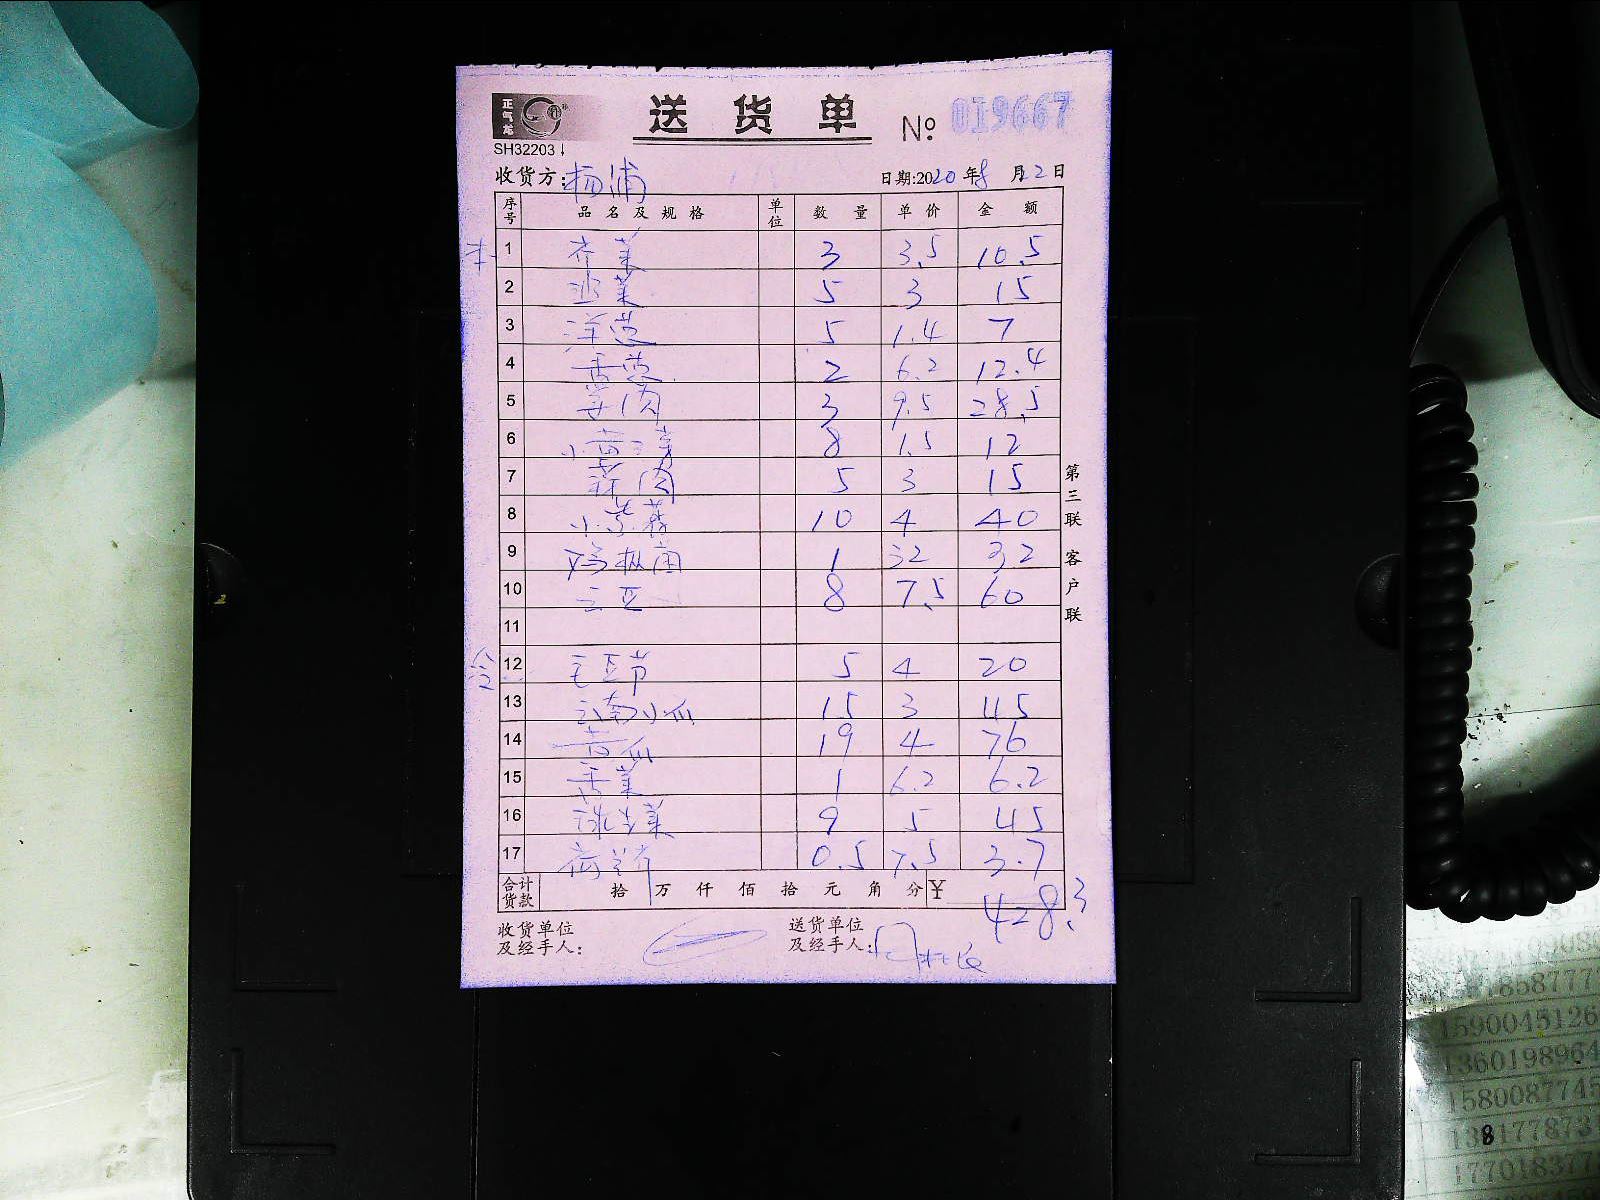 正气龙
送 货 单 № 019667
SH32203
收货方: 杨浦 日期:2020年8月12日
序号 品名及规格 单位 数量 单价 金额
本 1 芥菜 3 3.5 10.5
2 油菜 5 3 15
3 洋葱 5 1.4 7
4 香葱 2 6.2 12.4
5 姜肉 3 9.5 28.5
6 8 1.5 12
7 蒜肉 5 3 15
8 10 4 40
9 鸡枞菌 1 32 32
10 云豆 8 7.5 60
11
冷 12 毛豆节 5 4 20
13 云南小瓜 15 3 45
14 黄瓜 19 4 76
15 香菜 1 6.2 6.2
16 9 5 45
17 荷兰芹 0.5 7.5 3.7
合计货款 拾 万 仟 佰 拾 元 角 分 ¥ 428.3
收货单位及经手人: 送货单位及经手人:
第三联 客户联
1590045126
1360198964
1580087745
1381778731
177018377